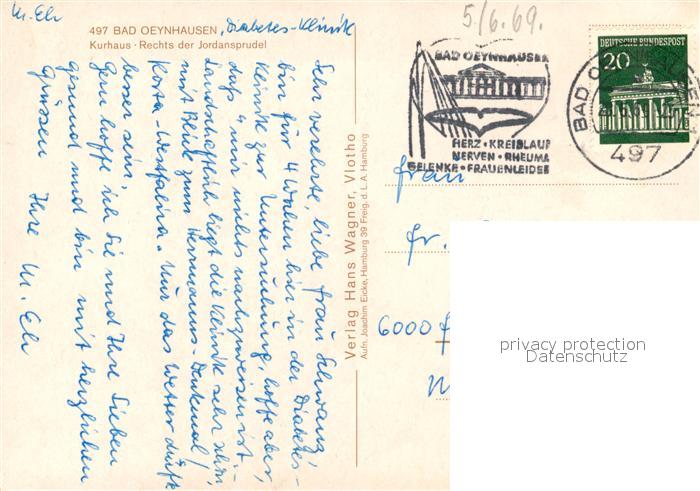 M. Eli
497 BAD OEYNHAUSEN "Diabetes-Klinik
Kurhaus · Rechts der Jordansprudel
Sehr verehrte, liebe Frau Schwanz,
bin für 4 Wochen hier in der Diabetes-
Klinik zur Untersuchung, hoffe aber,
daß mir nichts nachzuweisen ist. -
Landschaftlich liegt die Klinik sehr schön,
mit Blick zum Hermanns-Denkmal/
Porta-Westfalica. Nur das Wetter dürfte
besser sein.
Gern hoffe ich Sie und Ihre Lieben
gesund und bin mit herzlichen
Grüssen Ihre M. Eli
Verlag Hans Wagner, Vlotho
Aufn. Joachim Eicke, Hamburg 39 Freig. d. L. A. Hamburg
5/6.69.
BAD OEYNHAUSEN
HERZ · KREISLAUF
NERVEN · RHEUMA
GELENKE · FRAUENLEIDEN
DEUTSCHE BUNDESPOST
20
BAD
497
Frau
Fr.
6000
privacy protection
Datenschutz